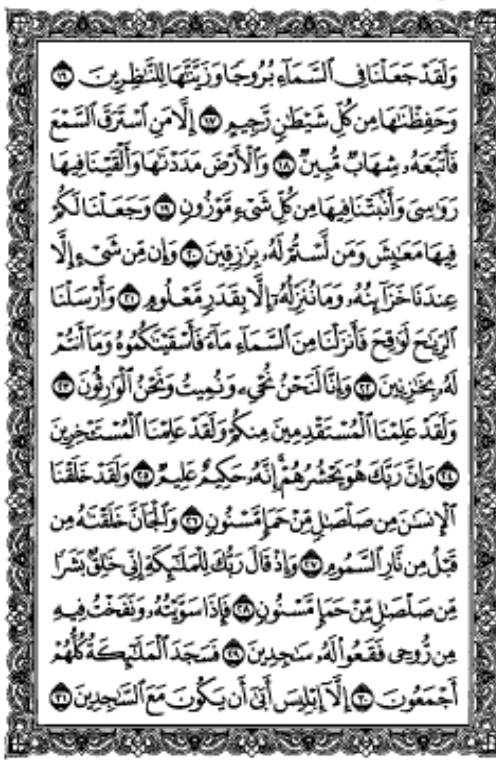 وَلَقَدْ جَعَلْنَا فِي السَّمَاءِ بُرُوجًا وَزَيَّنَّاهَا لِلنَّاظِرِينَ ١٦
وَحَفِظْنَٰهَا مِن كُلِّ شَيْطَٰنٍ رَّجِيمٍ ١٧ إِلَّا مَنِ ٱسْتَرَقَ ٱلسَّمْعَ
فَأَتْبَعَهُۥ شِهَابٌ مُّبِينٌ ١٨ وَٱلْأَرْضَ مَدَدْنَٰهَا وَأَلْقَيْنَا فِيهَا
رَوَٰسِيَ وَأَنۢبَتْنَا فِيهَا مِن كُلِّ شَيْءٍ مَّوْزُونٍ ١٩ وَجَعَلْنَا لَكُمْ
فِيهَا مَعَٰيِشَ وَمَن لَّسْتُمْ لَهُۥ بِرَٰزِقِينَ ٢٠ وَإِن مِّن شَيْءٍ إِلَّا
عِندَنَا خَزَآئِنُهُۥ وَمَا نُنَزِّلُهُۥٓ إِلَّا بِقَدَرٍ مَّعْلُومٍ ٢١ وَأَرْسَلْنَا
ٱلرِّيَٰحَ لَوَٰقِحَ فَأَنزَلْنَا مِنَ ٱلسَّمَآءِ مَآءً فَأَسْقَيْنَٰكُمُوهُ وَمَآ أَنتُمْ
لَهُۥ بِخَٰزِنِينَ ٢٢ وَإِنَّا لَنَحْنُ نُحْيِۦ وَنُمِيتُ وَنَحْنُ ٱلْوَٰرِثُونَ ٢٣
وَلَقَدْ عَلِمْنَا ٱلْمُسْتَقْدِمِينَ مِنكُمْ وَلَقَدْ عَلِمْنَا ٱلْمُسْتَـْٔخِرِينَ
٢٤ وَإِنَّ رَبَّكَ هُوَ يَحْشُرُهُمْ ۚ إِنَّهُۥ حَكِيمٌ عَلِيمٌ ٢٥ وَلَقَدْ خَلَقْنَا
ٱلْإِنسَٰنَ مِن صَلْصَٰلٍ مِّنْ حَمَإٍ مَّسْنُونٍ ٢٦ وَٱلْجَآنَّ خَلَقْنَٰهُ مِن
قَبْلُ مِن نَّارِ ٱلسَّمُومِ ٢٧ وَإِذْ قَالَ رَبُّكَ لِلْمَلَٰٓئِكَةِ إِنِّي خَٰلِقٌۢ بَشَرًا
مِّن صَلْصَٰلٍ مِّنْ حَمَإٍ مَّسْنُونٍ ٢٨ فَإِذَا سَوَّيْتُهُۥ وَنَفَخْتُ فِيهِ
مِن رُّوحِي فَقَعُوا۟ لَهُۥ سَٰجِدِينَ ٢٩ فَسَجَدَ ٱلْمَلَٰٓئِكَةُ كُلُّهُمْ
أَجْمَعُونَ ٣٠ إِلَّآ إِبْلِيسَ أَبَىٰٓ أَن يَكُونَ مَعَ ٱلسَّٰجِدِينَ ٣١